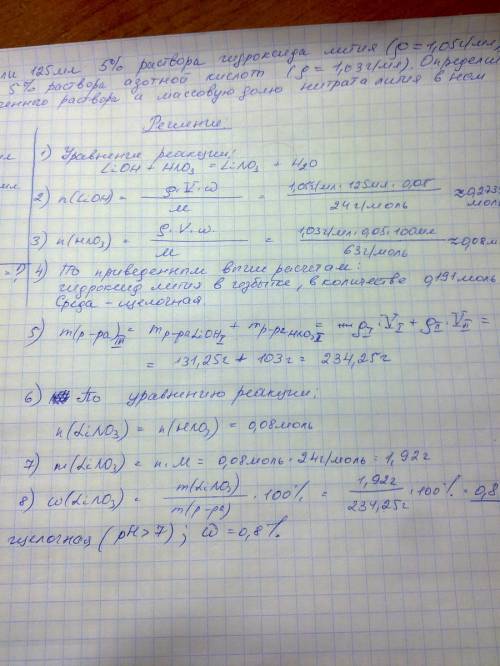 ли 125мл 5% раствора гидроксида лития (ρ = 1,05г/мл)
5% раствора азотной кислот (ρ = 1,03г/мл). Определи
ченного раствора а массовую долю нитрата лития в нем
Решение:
1) Уравнение реакции:
LiOH + HNO3 = LiNO3 + H2O
мл
2) n(LiOH) = ρ·V·ω / M = 1,05г/мл·125мл·0,05 / 24г/моль ≈0,2735 моль
3) n(HNO3) = ρ·V·ω / M = 1,03г/мл·0,05·100мл / 63г/моль ≈0,08м
= ?
4) По приведенным выше расчетам:
гидроксид лития в избытке, в количестве 0,191 моль
Среда - щелочная
5) m(р-ра)III = mр-раLiOHI + mр-раHNO3II = ρI·VI + ρII·VII =
= 131,25г + 103г = 234,25г
6) По уравнению реакции:
n(LiNO3) = n(HNO3) = 0,08моль
7) m(LiNO3) = n·M = 0,08моль·24г/моль = 1,92г
8) ω(LiNO3) = m(LiNO3) / m(р-ра) ·100% = 1,92г / 234,25г ·100% = 0,8
щелочная (pH>7); ω = 0,8%